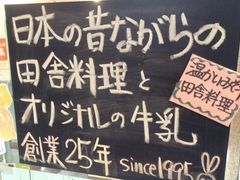 日本の昔ながらの
田舎料理と
オリジナルの牛乳
創業25年 since1995
田舎料理